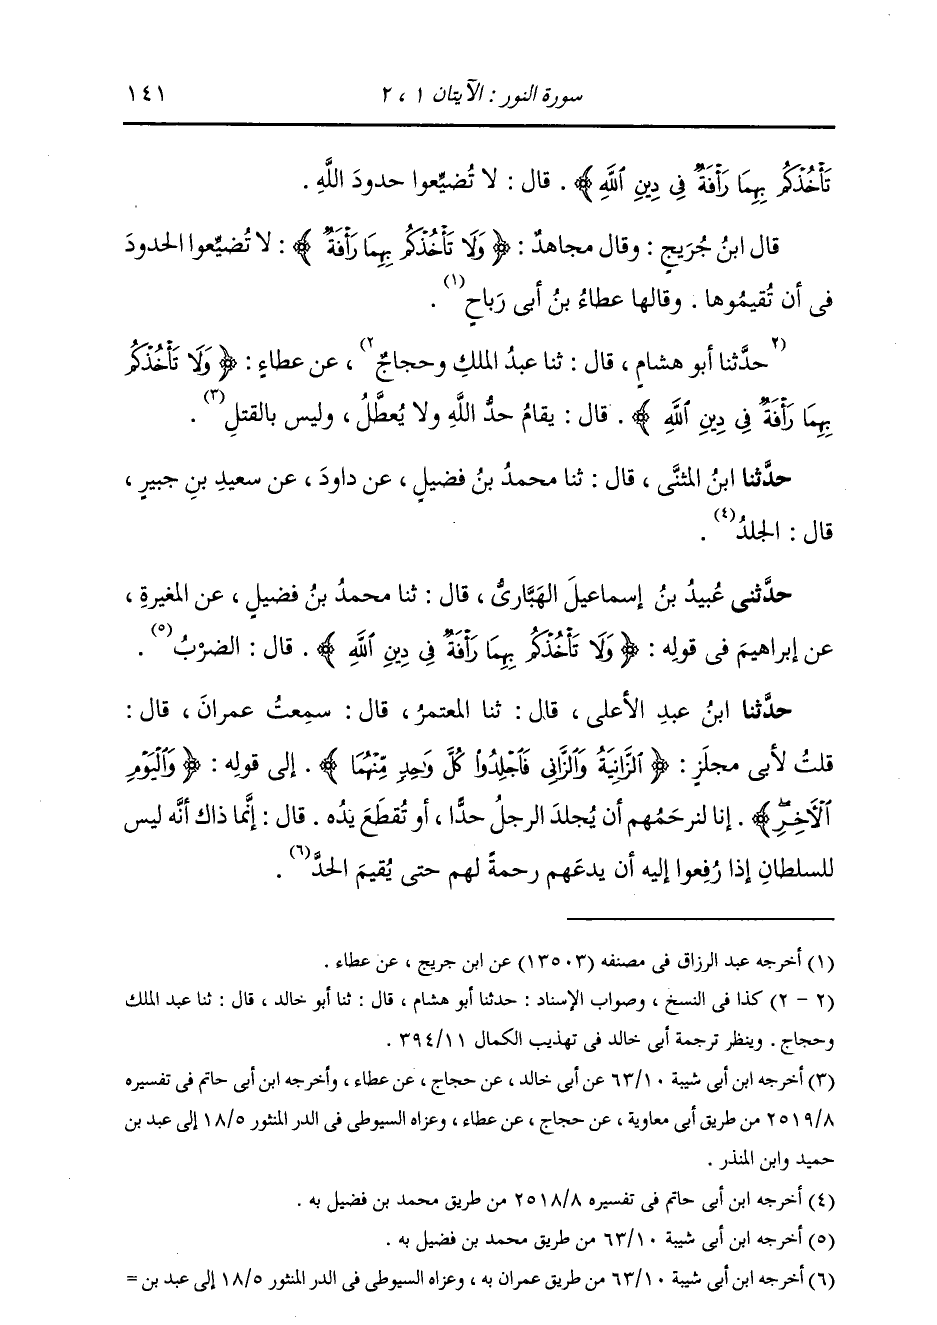 سورة النور : الآيتان ١ ، ٢ ١٤١
تَأْخُذْكُم بِهِمَا رَأْفَةٌ فِي دِينِ ٱللَّهِ ﴾ . قال : لا تُضيِّعوا حدودَ اللَّهِ .
قال ابنُ جُرَيجٍ : وقال مجاهدٌ : ﴿ وَلَا تَأْخُذْكُم بِهِمَا رَأْفَةٌ ﴾ : لا تُضيِّعوا الحدودَ
فى أن تُقيمُوها . وقالها عطاءُ بنُ أبى رَباحٍ(١) .
(٢حدَّثنا أبو هشامٍ ، قال : ثنا عبدُ الملكِ وحجاجٌ٢) ، عن عطاءٍ : ﴿ وَلَا تَأْخُذْكُم
بِهِمَا رَأْفَةٌ فِي دِينِ ٱللَّهِ ﴾ . قال : يقامُ حدُّ اللَّهِ ولا يُعطَّلُ ، وليس بالقتلِ(٣) .
حدَّثنا ابنُ المثنَّى ، قال : ثنا محمدُ بنُ فضيلٍ ، عن داودَ ، عن سعيدِ بنِ جبيرٍ ،
قال : الجلدُ(٤) .
حدَّثنى عُبيدُ بنُ إسماعيلَ الهَبَّارىُّ ، قال : ثنا محمدُ بنُ فضيلٍ ، عن المغيرةِ ،
عن إبراهيمَ فى قولِه : ﴿ وَلَا تَأْخُذْكُم بِهِمَا رَأْفَةٌ فِي دِينِ ٱللَّهِ ﴾ . قال : الضرْبُ(٥) .
حدَّثنا ابنُ عبدِ الأعلى ، قال : ثنا المعتمرُ ، قال : سمِعتُ عمرانَ ، قال :
قلتُ لأبى مجلَزٍ : ﴿ ٱلزَّانِيَةُ وَٱلزَّانِي فَٱجْلِدُوا۟ كُلَّ وَٰحِدٍ مِّنْهُمَا ﴾ . إلى قولِه : ﴿ وَٱلْيَوْمِ
ٱلْءَاخِرِ ﴾ . إنا لنرحَمُهم أن يُجلدَ الرجلُ حدًّا ، أو تُقطَعَ يدُه . قال : إنَّما ذاك أنَّه ليس
للسلطانِ إذا رُفِعوا إليه أن يدعَهم رحمةً لهم حتى يُقيمَ الحدَّ(٦) .
(١) أخرجه عبد الرزاق فى مصنفه (١٣٥٠٣) عن ابن جريج ، عن عطاء .
(٢ - ٢) كذا فى النسخ ، وصواب الإسناد : حدثنا أبو هشام ، قال : ثنا أبو خالد ، قال : ثنا عبد الملك
وحجاج . وينظر ترجمة أبى خالد فى تهذيب الكمال ٣٩٤/١١ .
(٣) أخرجه ابن أبى شيبة ٦٣/١٠ عن أبى خالد ، عن حجاج ، عن عطاء ، وأخرجه ابن أبى حاتم فى تفسيره
٢٥١٩/٨ من طريق أبى معاوية ، عن حجاج ، عن عطاء ، وعزاه السيوطى فى الدر المنثور ١٨/٥ إلى عبد بن
حميد وابن المنذر .
(٤) أخرجه ابن أبى حاتم فى تفسيره ٢٥١٨/٨ من طريق محمد بن فضيل به .
(٥) أخرجه ابن أبى شيبة ٦٣/١٠ من طريق محمد بن فضيل به .
(٦) أخرجه ابن أبى شيبة ٦٣/١٠ من طريق عمران به ، وعزاه السيوطى فى الدر المنثور ١٨/٥ إلى عبد بن =